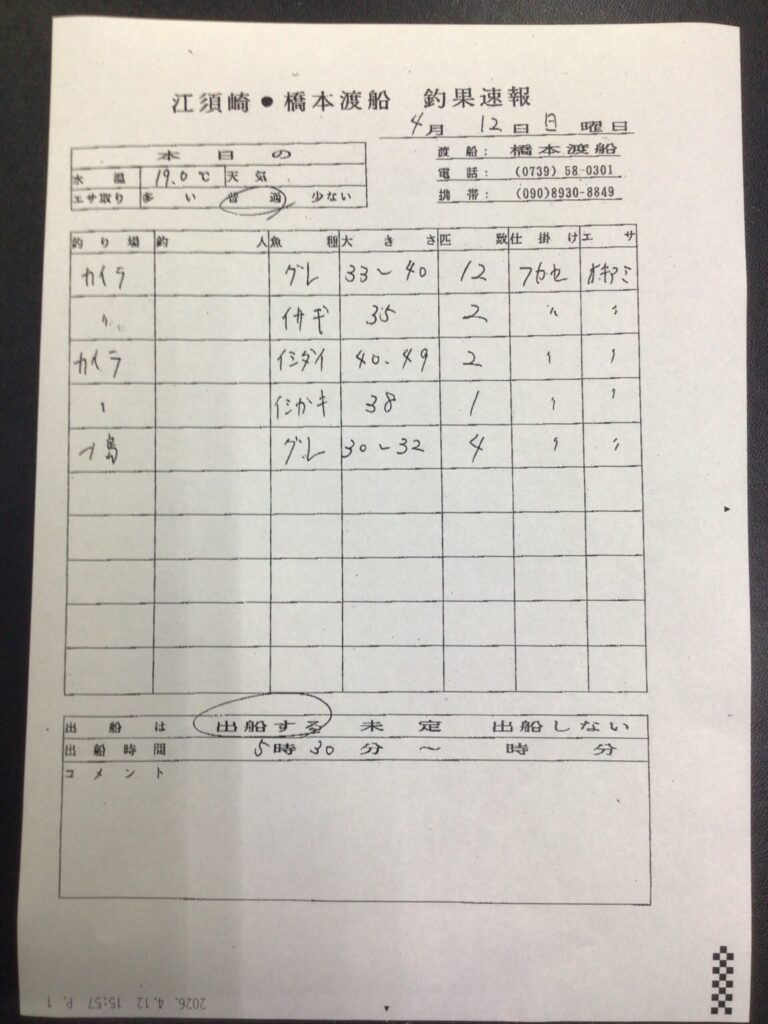 江須崎●橋本渡船 釣果速報
4月 12日 日 曜日
本日の
水温 19.0℃ 天気
エサ取り 多い 普通 少ない
渡船: 橋本渡船
電話: (0739) 58-0301
携帯: (090)8930-8849
釣り場 釣人 魚種 大きさ 匹数 仕掛け エサ
カイラ グレ 33～40 12 フカセ オキアミ
〃 イサギ 35 2 〃 〃
カイラ イシダイ 40.49 2 〃 〃
〃 イシガキ 38 1 〃 〃
島 グレ 30～32 4 〃 〃
出船は 出船する 未定 出船しない
出船時間 5時30分 ～ 時 分
コメント
2026. 4.12 15:57 P. 1